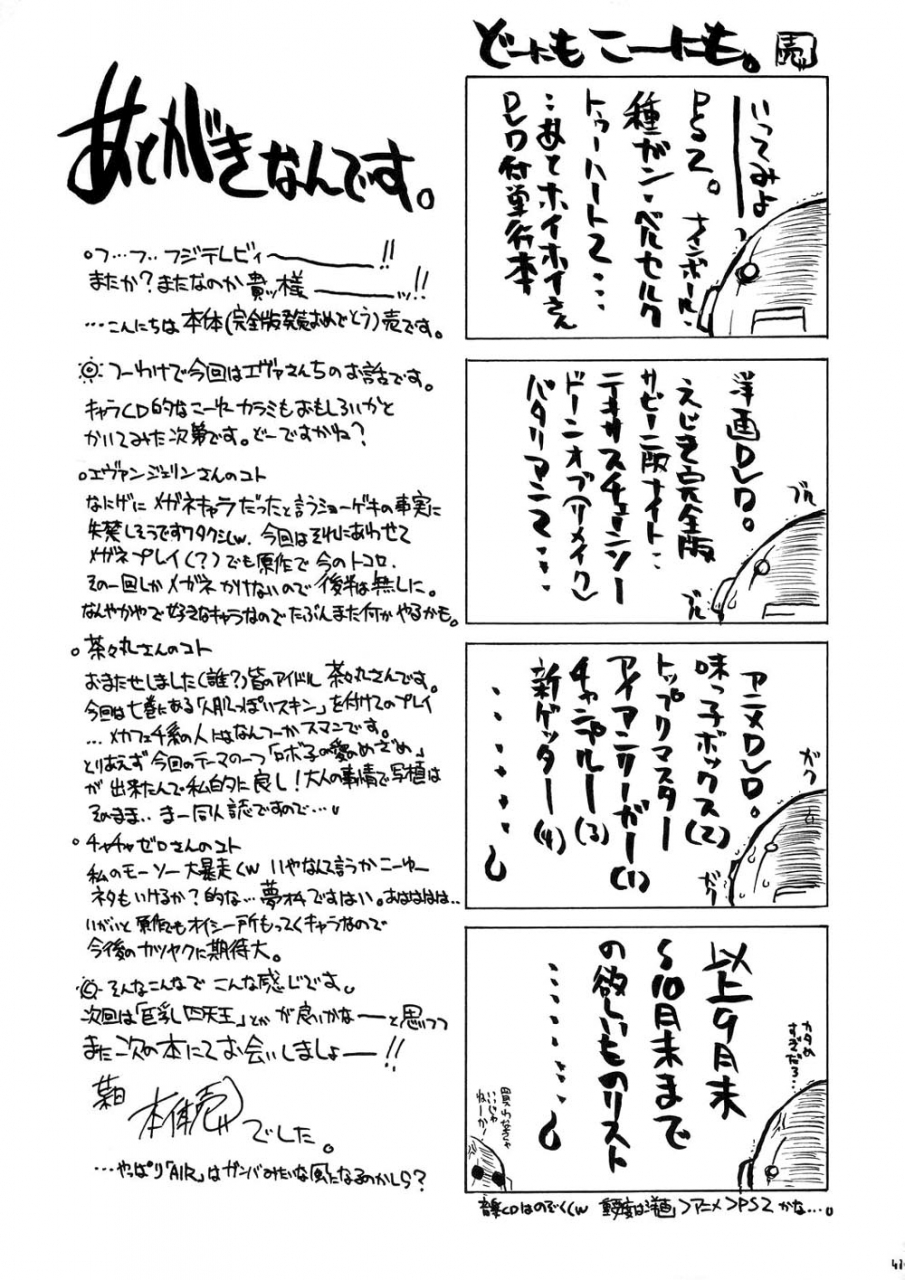 あとがきなんです。
○フ…フ…フジテレビィ――――!!
またか?またなのか貴ッ様―――ッ!!
…こんにちは本体(完全版発売おめでとう)売です。
つーわけで今回はエヴァさんちのお話です。
キャラCD的なこーゆーカラミもおもしろいかと
かいてみた次第です。どーですかね?
○エヴァンジェリンさんのコト
なにげにメガネキャラだったと言うショーゲキの事実に
失禁しそうですワタクシ(w. 今回はそれにあわせて
メガネプレイ(?)でも原作で今のトコロ、
その一回しかメガネかけないので後半は無しに。
なんやかやで好きなキャラなのでたぶんまた何かやるかも。
○茶々丸さんのコト
おまたせしました(誰?)皆のアイドル茶々丸さんです。
今回は七巻にある「人肌っぽいスキン」を付けてのプレイ
…メカフェチ系の人にはなんつーかスマンです。
とりあえず今回のテーマの一つ「ロボ子の愛のめざめ」
が出来たんで私的に良し!大人の事情で写植は
そのまま‥まー同人誌ですので…。
○チャチャゼロさんのコト
私のモーソー大暴走(w いやなんて言うかこーゆー
ネタもいけるか?的な…夢オチですはい。おはははは‥
いがいと原作でもオイシー所もってくキャラなので
今後のカツヤクに期待大。
そんなこんなでこんな感じです。
次回は「巨乳四天王」とかが良いかな――と思いつつ
また次の本にてお会いしましょ――!!
本体売
でした。
…やっぱり「AIR」はガンバみたいな風になるのかしら?
どーにもこーにも。
売
いってみよ――
PS2。ナインボール・
種ガン・ベルセルク
トゥーハート2…
‥あとホイホイさん
DVD付単行本
洋画DVD。
えじき完全版
サビーニ版ナイト‥
テキサスチェーンソー
ドーンオブ(リメイク)
バタリアン2‥‥
ブル
ブル
アニメDVD。
味っ子ボックス(2)
トップリマスター
アイアンリーガー(1)
チャンプルー(3)
新ゲッター(4)
‥‥‥。
ガク
ガク
以上9月末
~10月末まで
の欲しいものリスト
‥‥‥。
カタめ
すぎだろ…
買わなきゃ
いいじゃ
ねーか
音楽CDはのぞく(w 重要度は洋画>アニメ>PS2かな…。